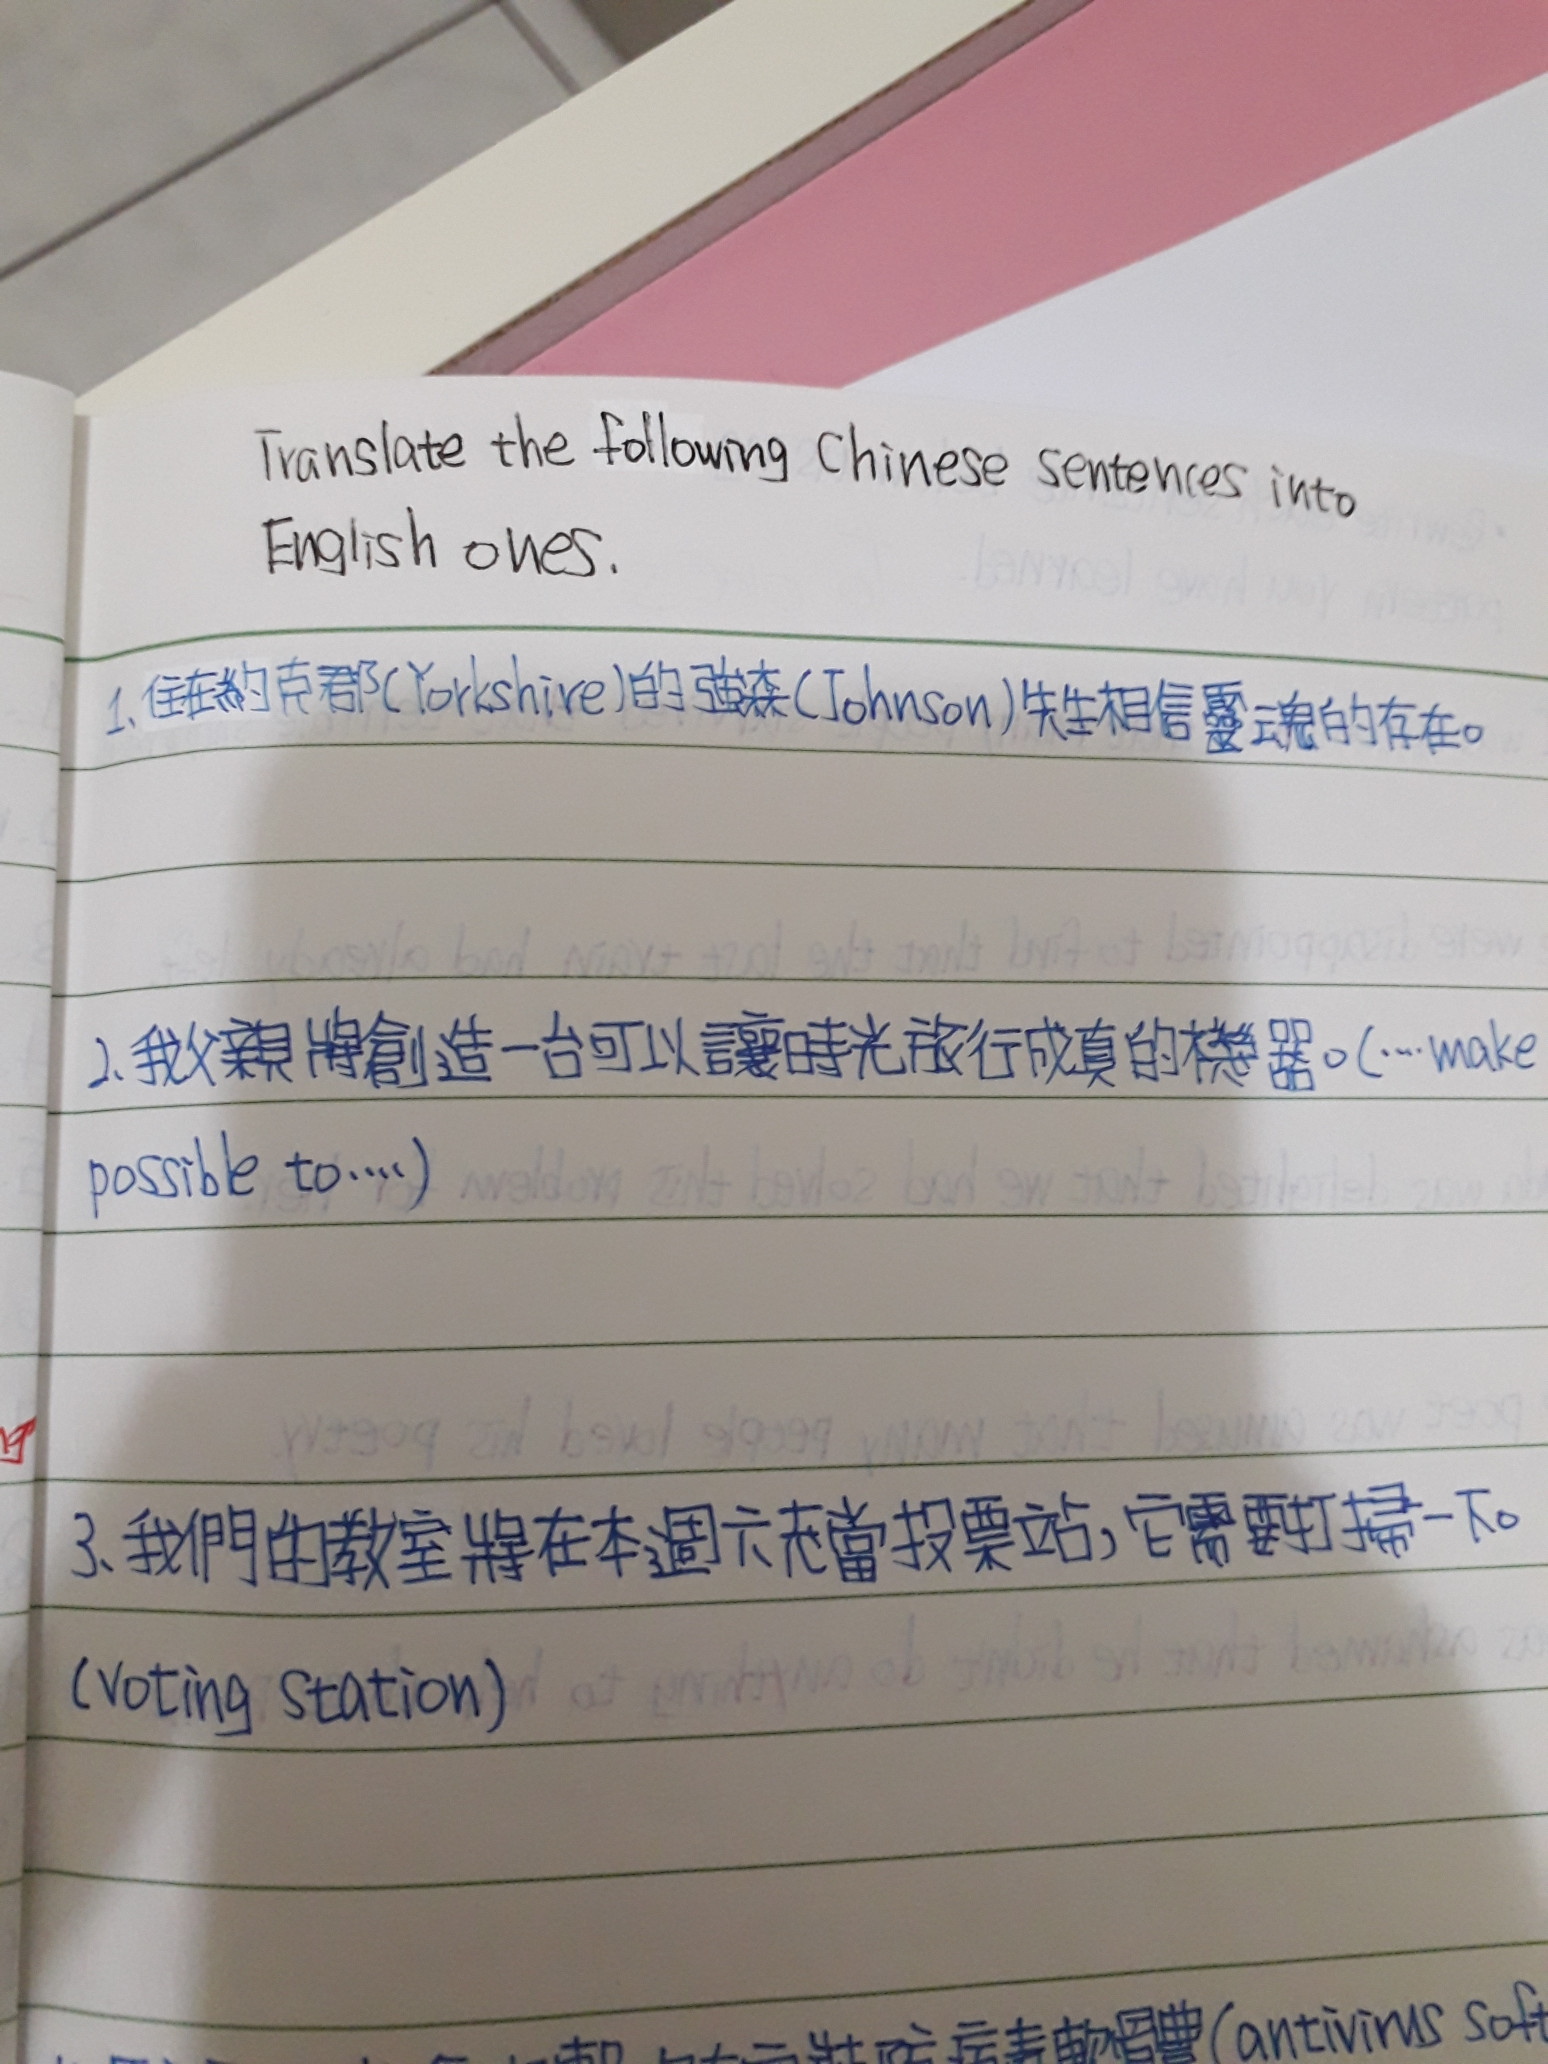 Translate the following Chinese sentences into
English ones.
1. 住在約克郡(Yorkshire)的強森(Johnson)先生相信靈魂的存在。
2. 我父親將創造一台可以讓時光旅行成真的機器。(....make
possible to....)
3. 我們的教室將在本週六充當投票站,它需要打掃一下。
(voting station)
防病毒軟體(antivirus soft